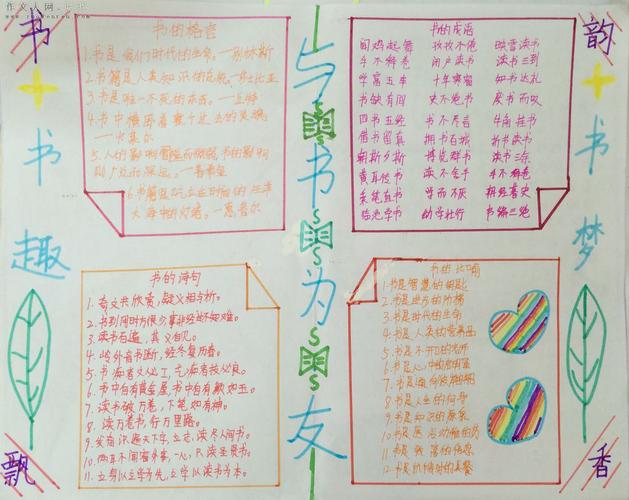 作文人网
书的格言
1.书是我们时代的生命。—别林斯
2.书籍是人类知识的总统。—莎士比亚
3.书是唯一不死的东西。—丘特
4.书中横卧着整个过去的灵魂。
—卡莱尔
5.人的影响短暂而微弱,书的影响
则广泛而深远。—普希金
6.书籍是屹立在时间的汪洋
大海中的灯塔。—惠普尔
书的成语
闻鸡起舞 孜孜不倦 映雪读书
手不释卷 闭户读书 读书三到
学富五车 十年寒窗 知书达礼
书缺有间 史不绝书 废书而叹
四书五经 书不尽言 牛角挂书
借书留真 拥书百城 折节读书
朝斯夕斯 博览群书 读书三余
黄耳传书 读不舍手 手不释卷
朱笔直书 学而不厌 耕经耨史
临池学书 幼学壮行 书编三绝
书的诗句
1.奇文共欣赏,疑义相与析。
2.书到用时方恨少事非经过不知难。
3.读书百遍,其义自见。
4.岭外音书断,经冬复历春。
5.书痴者文必工,艺痴者技必良。
6.书中自有黄金屋,书中自有颜如玉。
7.读书破万卷,下笔如有神。
8.读万卷书,行万里路。
9.发奋识遍天下字,立志读尽人间书。
10.两耳不闻窗外事,一心只读圣贤书。
11.立身以立学为先,立学以读书为本。
书的比喻
1.书是智慧的钥匙
2.书是进步的阶梯
3.书是时代的生命
4.书是人类的营养品
5.书是不开口的老师
8.书是人生的向导
9.书是知识的源泉
与书为友
书书趣飘
韵书梦香